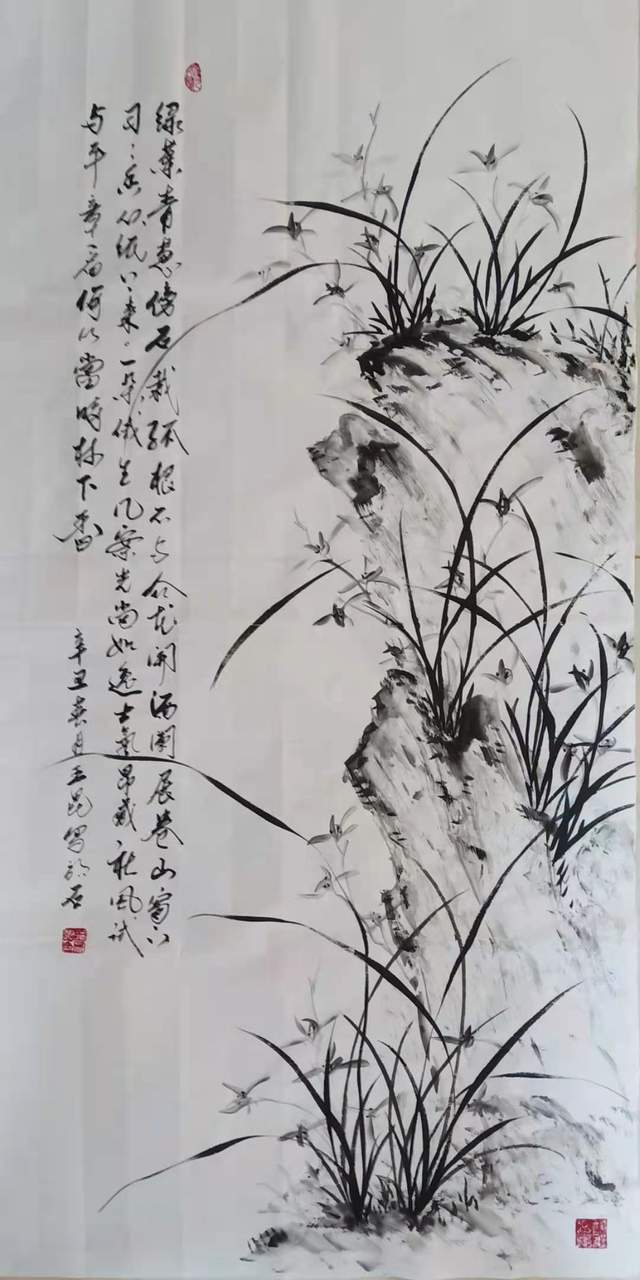 绿叶青葱傍石栽孤根不与众花开酒阑展卷山窗下
习习香从纸上来一朵俄生几案光尚如逸士气昂藏秋风试
与平章看何似当时林下香
辛丑春月王昆写於石